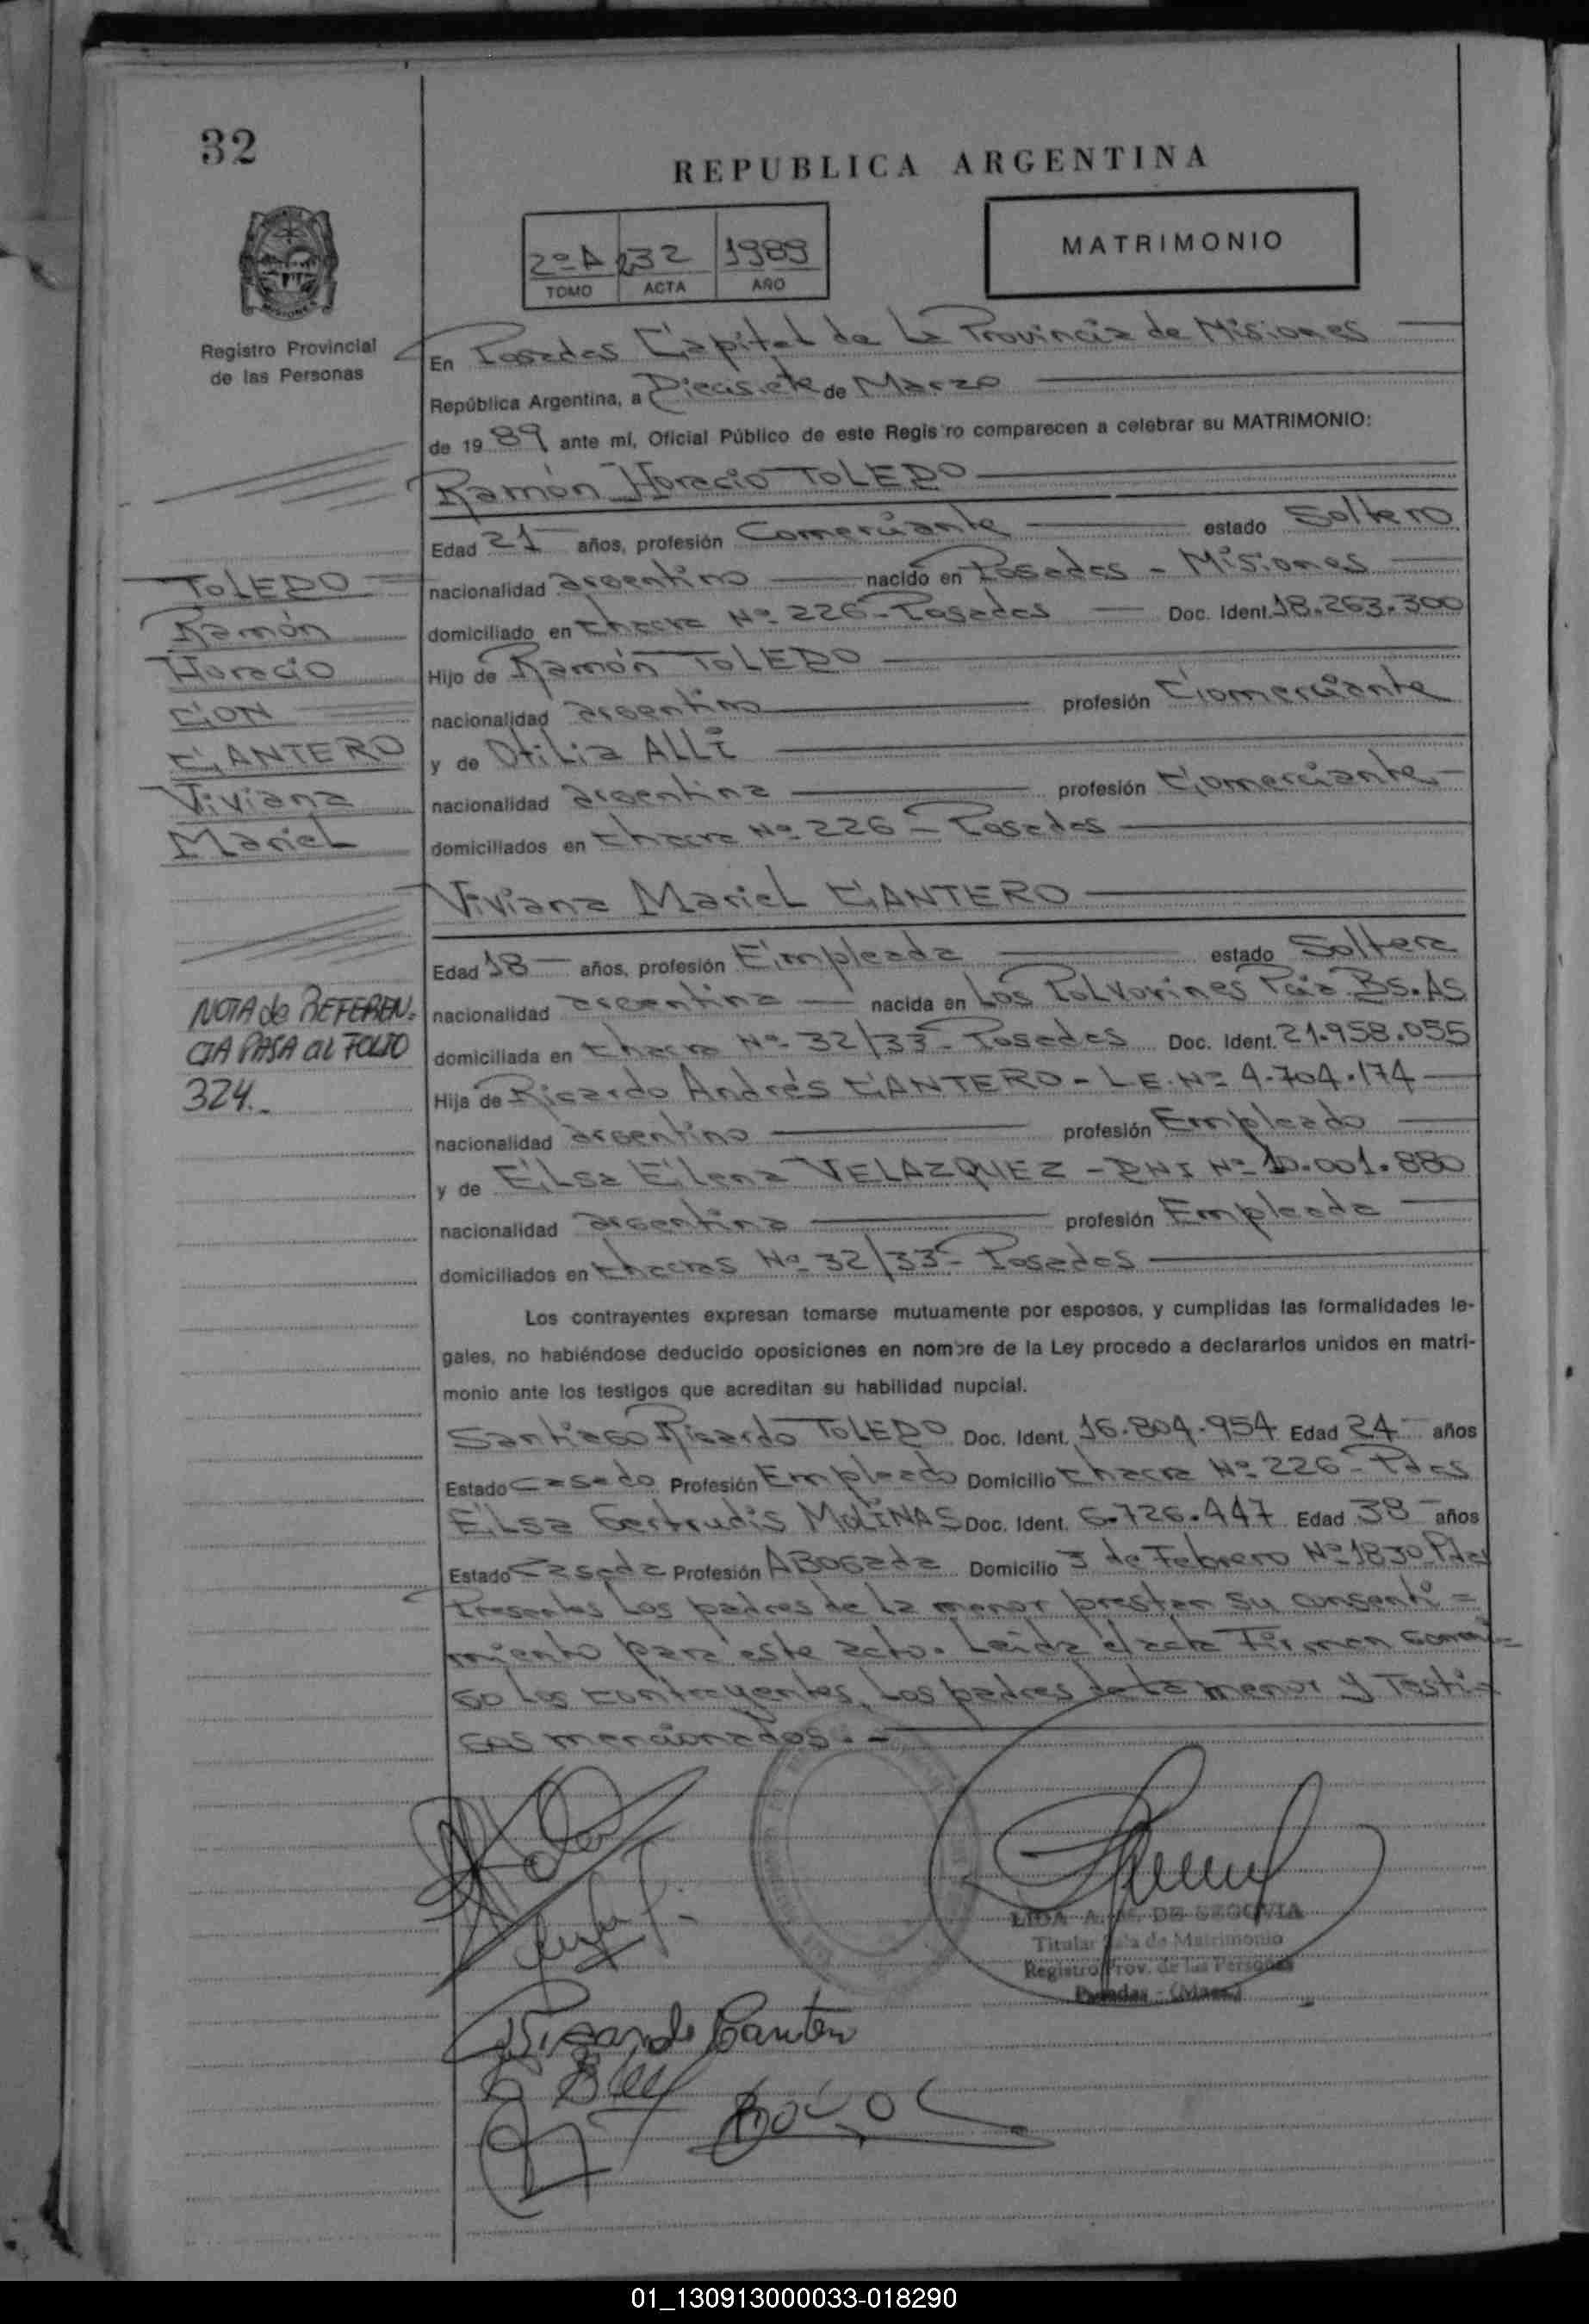 32
REPUBLICA ARGENTINA
2º A 232 1989
TOMO ACTA AÑO
MATRIMONIO
Registro Provincial
de las Personas
En Posadas Capital de La Provincia de Misiones
República Argentina, a Diecisiete de Marzo
de 1989 ante mí, Oficial Público de este Regis ro comparecen a celebrar su MATRIMONIO:
Ramón Horacio TOLEDO
Edad 21 años, profesión Comerciante estado Soltero
nacionalidad argentino nacido en Posadas - Misiones
domiciliado en Chacra Nº 226 - Posadas Doc. Ident. 18.263.300
Hijo de Ramón TOLEDO
nacionalidad argentino profesión Comerciante
y de Otilia ALLI
nacionalidad argentina profesión Comerciante
domiciliados en Chacra Nº 226 - Posadas
Viviana Mariel CANTERO
Edad 18 años, profesión Empleada estado Soltera
nacionalidad argentina nacida en Los Polvorines Pcia Bs. As
domiciliada en Chacra Nº 32/33 - Posadas Doc. Ident. 21.958.055
Hija de Ricardo Andrés CANTERO - L.E. Nº 4.704.174
nacionalidad argentino profesión Empleado
y de Elsa Elena VELAZQUEZ - DNI Nº 10.001.880
nacionalidad argentina profesión Empleada
domiciliados en Chacras Nº 32/33 - Posadas
Los contrayentes expresan tomarse mutuamente por esposos, y cumplidas las formalidades le-
gales, no habiéndose deducido oposiciones en nombre de la Ley procedo a declararlos unidos en matri-
monio ante los testigos que acreditan su habilidad nupcial.
Santiago Ricardo TOLEDO Doc. Ident. 16.804.954 Edad 24 años
Estado Casado Profesión Empleado Domicilio Chacra Nº 226 - Pdas
Elsa Gertrudis MOLINAS Doc. Ident. 6.726.447 Edad 38 años
Estado Casada Profesión Abogada Domicilio 3 de Febrero Nº 1830 Pdas
Presentes Los padres de la menor prestan su consenti=
miento para este acto. Leida el acta Firman conmi=
go Los contrayentes, Los padres de la menor y Testi=
gos mencionados.-
TOLEDO
Ramón
Horacio
CON
CANTERO
Viviana
Mariel
NOTA de REFEREN=
CIA PASA al FOLIO
324.-
LIDA A. DE SEGOVIA
Titular Sala de Matrimonio
Registro Prov. de las Personas
Posadas - (Mnes.)
Ricardo Cantero
01_130913000033-018290